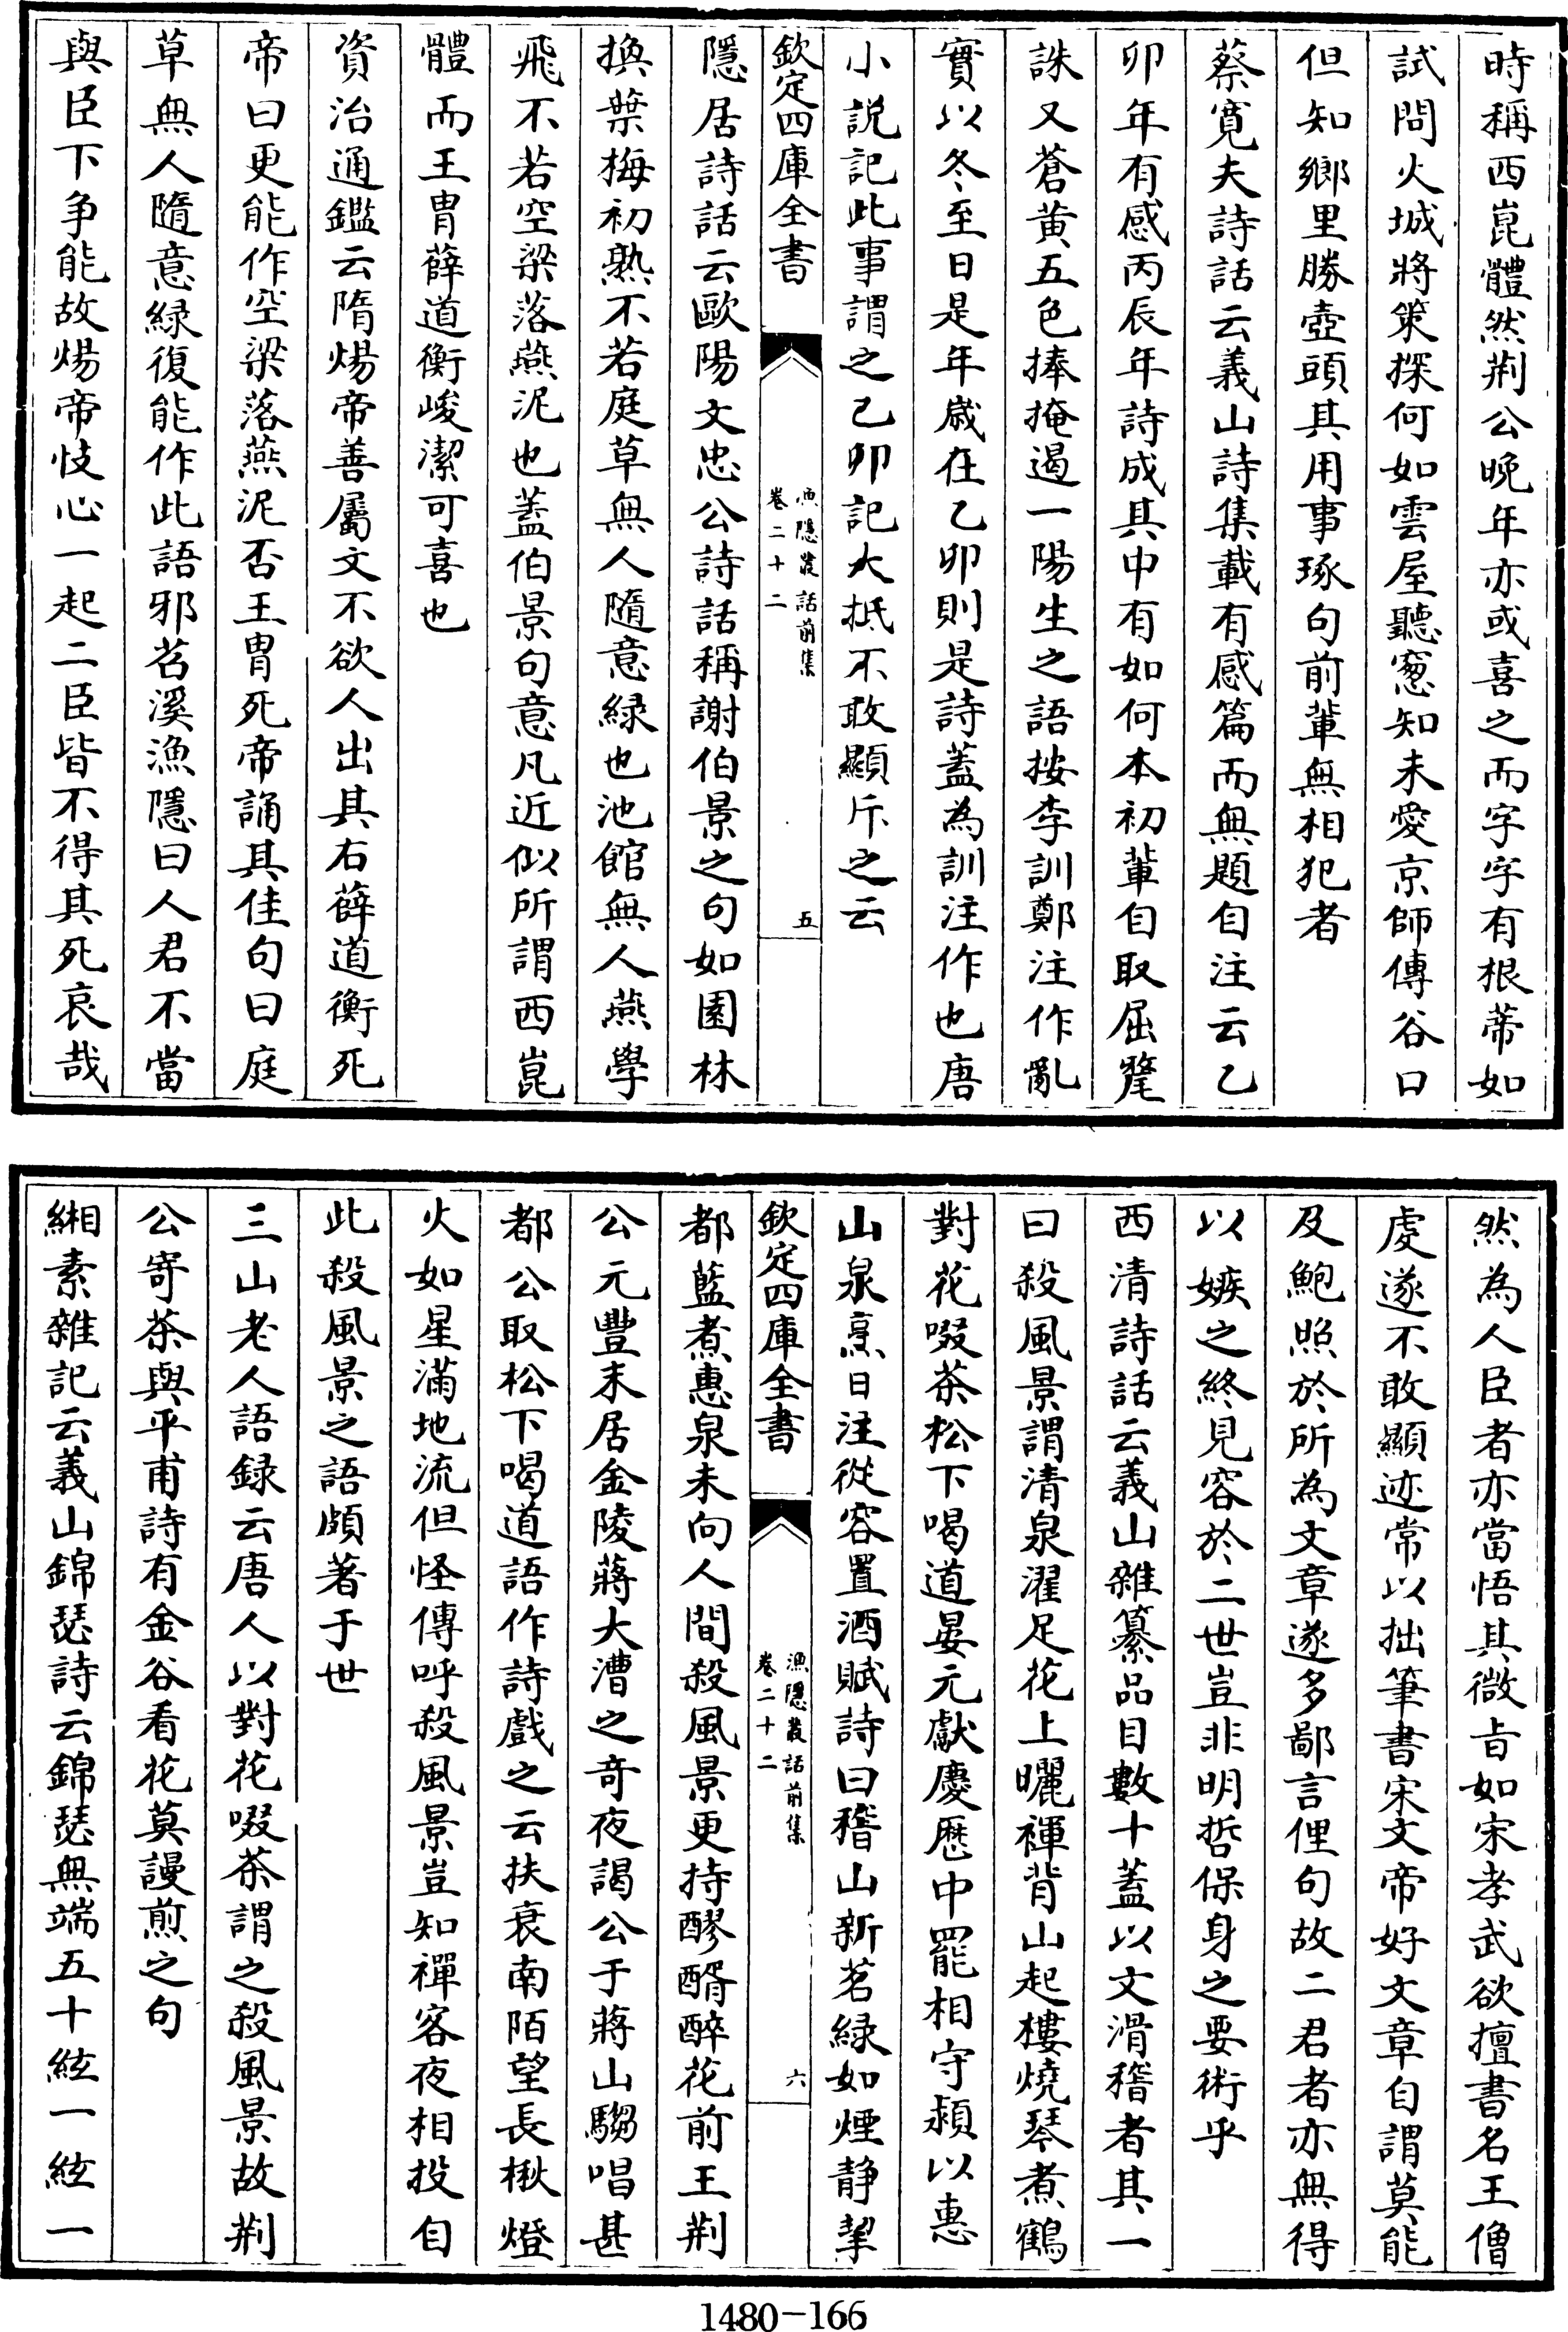 時稱西崑體然荆公晚年亦或喜之而字字有根蔕如
試問火城將策探何如雲屋聽窻知未愛京師傳谷口
但知鄉里勝壺頭其用事琢句前輩無相犯者
蔡寛夫詩話云義山詩集載有感篇而無題自注云乙
卯年有感丙辰年詩成其中有如何本初輩自取屈氂
誅又蒼黄五色捧掩遏一陽生之語按李訓鄭注作亂
實以冬至日是年歳在乙卯則是詩蓋為訓注作也唐
小説記此事謂之乙卯記大抵不敢顯斥之云
欽定四庫全書
漁隱叢話前集
卷二十二
五
隱居詩話云歐陽文忠公詩話稱謝伯景之句如園林
換葉梅初熟不若庭草無人隨意緑也池館無人燕學
飛不若空梁落燕泥也蓋伯景句意凡近似所謂西崑
體而王胄薛道衡峻潔可喜也
資治通鑑云隋煬帝善屬文不欲人出其右薛道衡死
帝曰更能作空梁落燕泥否王胄死帝誦其佳句曰庭
草無人隨意緑復能作此語邪苕溪漁隱曰人君不當
與臣下争能故煬帝忮心一起二臣皆不得其死哀哉
然為人臣者亦當悟其微㫖如宋孝武欲擅書名王僧
虔遂不敢顯迹常以拙筆書宋文帝好文章自謂莫能
及鮑照於所為文章遂多鄙言俚句故二君者亦無得
以嫉之終見容於二世豈非明哲保身之要術乎
西清詩話云義山雜纂品目數十蓋以文滑稽者其一
曰殺風景謂清泉濯足花上曬褌背山起樓燒琴煮鶴
對花啜茶松下喝道晏元獻慶厯中罷相守潁以惠
山泉烹日注從容置酒賦詩曰稽山新茗緑如煙静挈
欽定四庫全書
漁隱叢話前集
卷二十二
六
都藍煮惠泉未向人間殺風景更持醪醑醉花前王荆
公元豐末居金陵蔣大漕之竒夜謁公于蔣山騶唱甚
都公取松下喝道語作詩戲之云扶衰南陌望長楸燈
火如星滿地流但怪傳呼殺風景豈知禪客夜相投自
此殺風景之語頗著于世
三山老人語録云唐人以對花啜茶謂之殺風景故荆
公寄茶與平甫詩有金谷看花莫謾煎之句
緗素雜記云義山錦瑟詩云錦瑟無端五十絃一絃一
1480-166